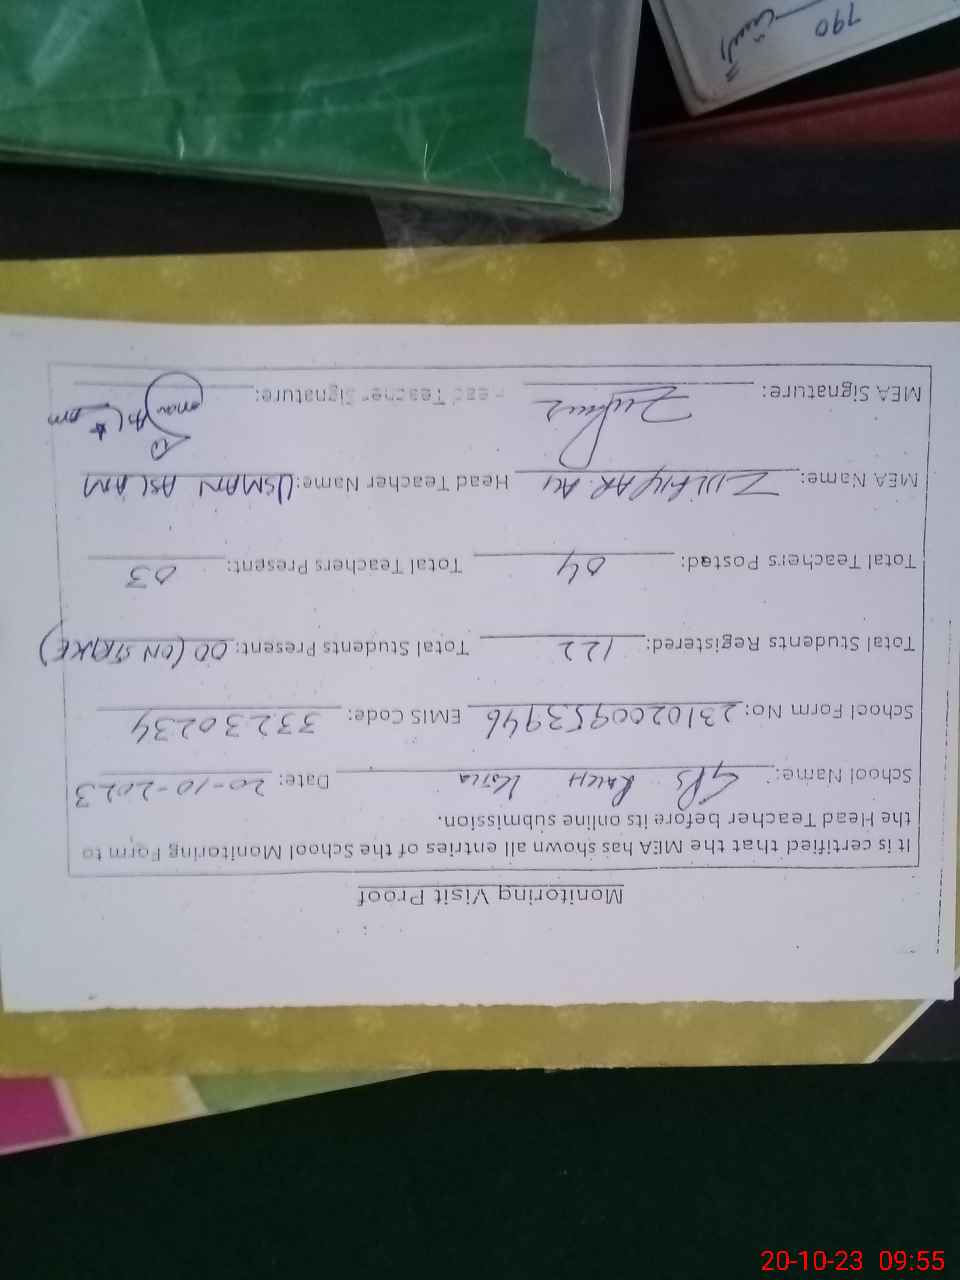 Monitoring Visit Proof
It is certified that the MEA has shown all entries of the School Monitoring Form to
the Head Teacher before its online submission.
School Name: GPS Date: 20-10-2023
School Form No: 2310200953946 EMIS Code: 33230234
Total Students Registered: 122 Total Students Present: 00 (ON STRIKE)
Total Teachers Posted: 04 Total Teachers Present: 03
MEA Name: ZULFIQAR ALI Head Teacher Name: USMAN ASLAM
MEA Signature: Head Teacher Signature:
790
20-10-23 09:55